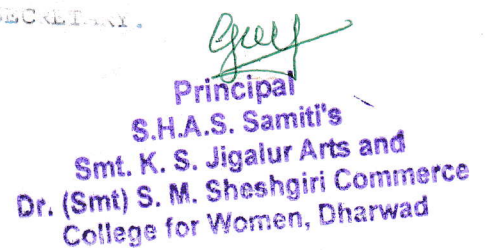 SECRETARY.
Principal
S.H.A.S. Samiti's
Smt. K. S. Jigalur Arts and
Dr. (Smt) S. M. Sheshgiri Commerce
College for Women, Dharwad